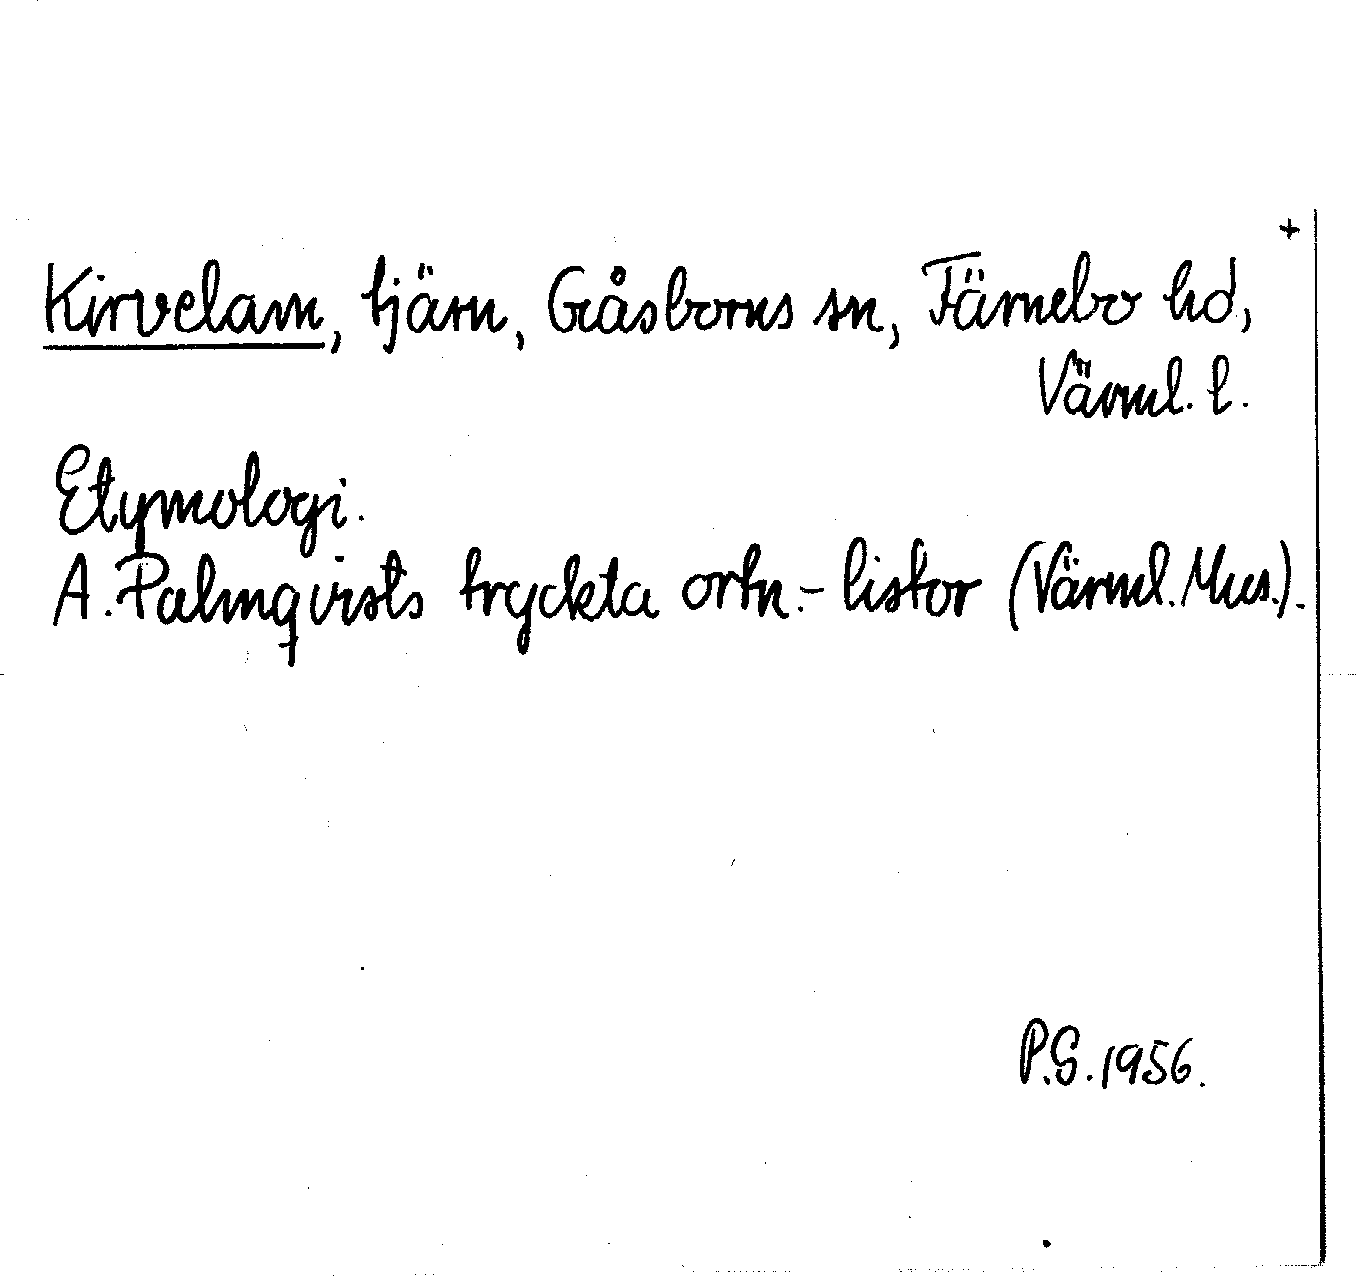 +
Kirvelam, tjärn, Gåsborns sn, Färnebo hd,
Värml. l.
Etymologi.
A. Palmqvists tryckta ortn.-listor (Värml. Mus.).
P.G. 1956.